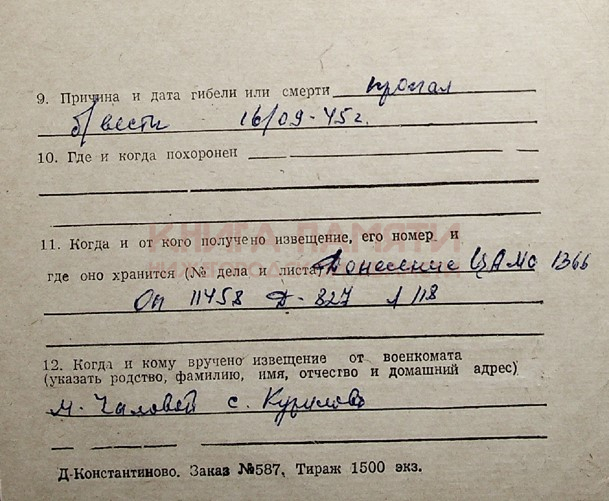 9. Причина и дата гибели или смерти пропал
б/вести 16/09-45г.
10. Где и когда похоронен
КНИГА ПАМЯТИ
11. Когда и от кого получено извещение, его номер и
где оно хранится (№ дела и листа) Донесение ЦАМО 1366
Оп 11458 Д-827 л 118
12. Когда и кому вручено извещение от военкомата
(указать родство, фамилию, имя, отчество и домашний адрес)
м. Чаловой с. Курилово
Д-Константиново. Заказ №587, Тираж 1500 экз.